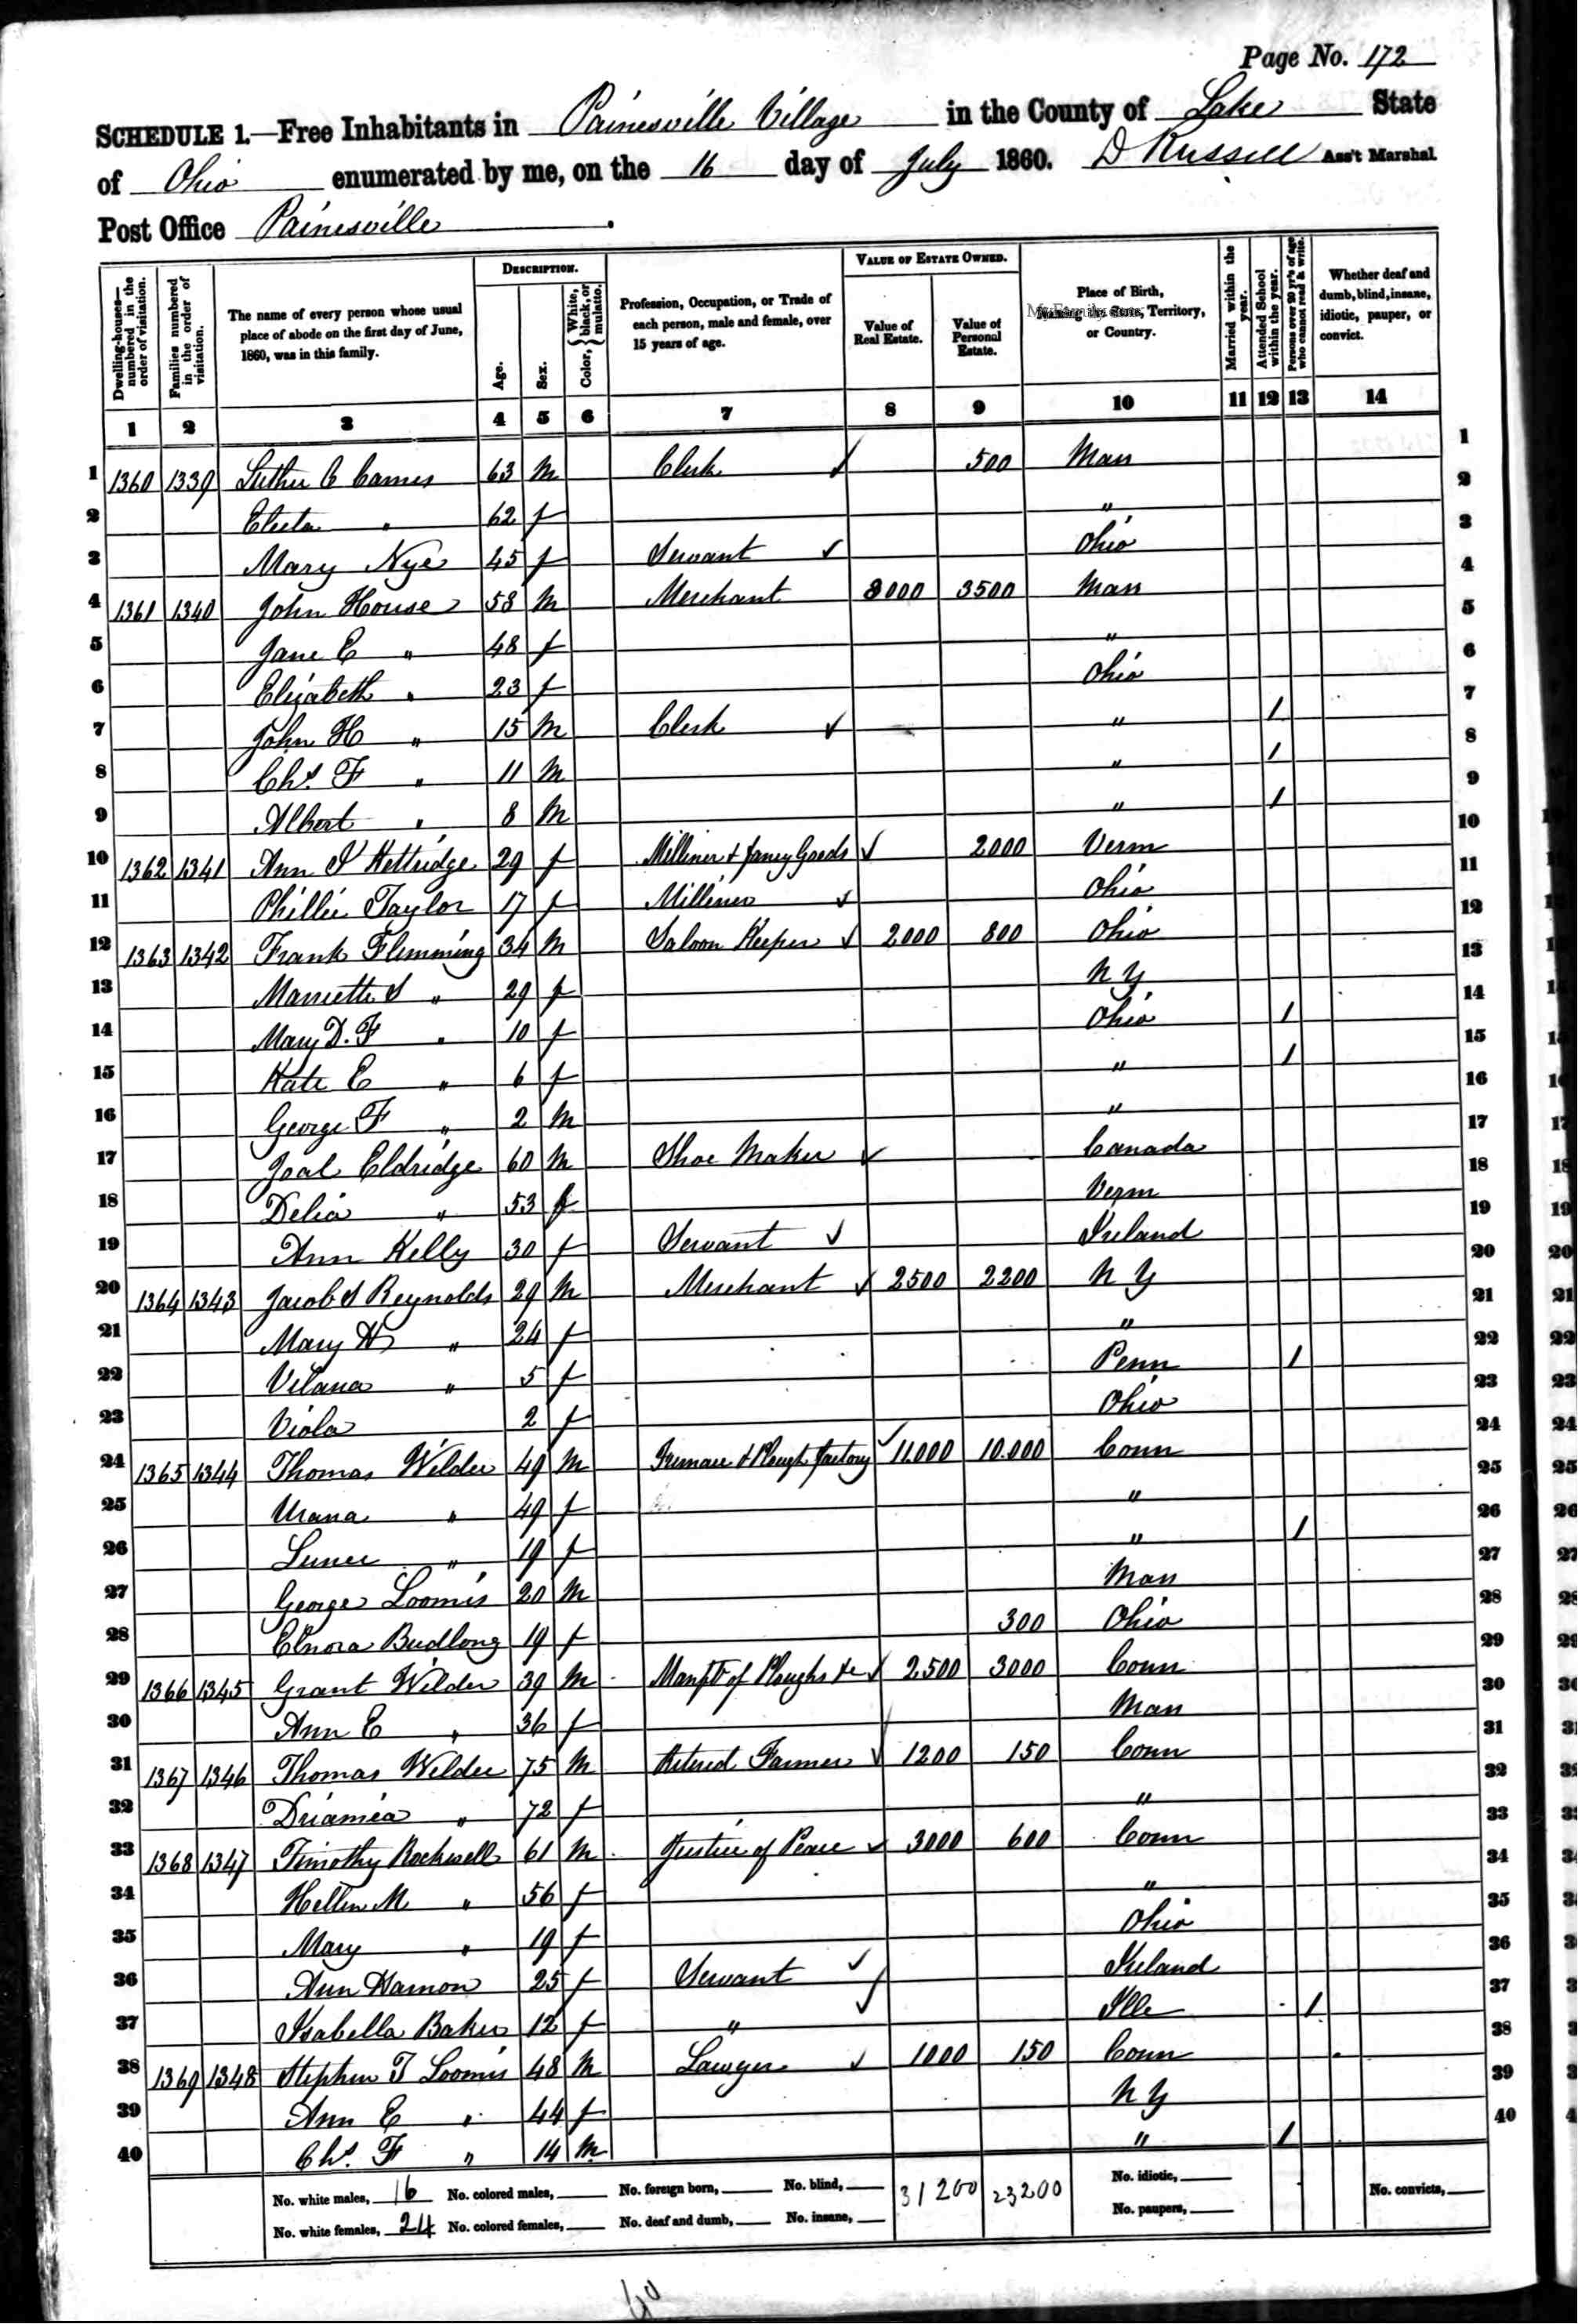 Page No. 172
SCHEDULE 1.—Free Inhabitants in Painesville Village in the County of Lake State
of Ohio enumerated by me, on the 16 day of July 1860. D Russell Ass't Marshal
Post Office Painesville.
Dwelling-houses—numbered in the order of visitation.
Families numbered in the order of visitation.
The name of every person whose usual place of abode on the first day of June, 1860, was in this family.
DESCRIPTION.
Age.
Sex.
Color, { White, black, or mulatto.
Profession, Occupation, or Trade of each person, male and female, over 15 years of age.
VALUE OF ESTATE OWNED.
Value of Real Estate.
Value of Personal Estate.
Place of Birth, Naming the State, Territory, or Country.
Married within the year.
Attended School within the year.
Persons over 20 y'rs of age who cannot read & write.
Whether deaf and dumb, blind, insane, idiotic, pauper, or convict.
1 2 3 4 5 6 7 8 9 10 11 12 13 14
1 1360 1339 Luther C Carnes 63 m Clerk ✓ 500 Mass 1
2 Electa " 62 f " 2
3 Mary Nye 45 f Servant ✓ Ohio 3
4 1361 1340 John House 58 m Merchant 8000 3500 Mass 4
5 Jane C " 48 f " 5
6 Elizabeth " 23 f Ohio 6
7 John H " 15 m Clerk ✓ " 1 7
8 Chs. F " 11 m " 1 8
9 Albert " 8 m " 1 9
10 1362 1341 Ann S Kettridge 29 f Milliner & fancy Goods ✓ 2000 Verm 10
11 Phillie Taylor 17 f Milliner ✓ Ohio 11
12 1363 1342 Frank Flemming 34 m Saloon Keeper ✓ 2000 800 Ohio 12
13 Marriette S " 29 f N Y 13
14 Mary D. F " 10 f Ohio 1 14
15 Kate E " 6 f " 1 15
16 George F " 2 m " 16
17 Joal Eldridge 60 m Shoe Maker ✓ Canada 17
18 Delia " 53 f Verm 18
19 Ann Kelly 30 f Servant ✓ Ireland 19
20 1364 1343 Jacob S Reynolds 29 m Merchant ✓ 2500 2200 N Y 20
21 Mary H " 24 f " 21
22 Velana " 5 f Penn 1 22
23 Viola 2 f Ohio 23
24 1365 1344 Thomas Wilder 49 m Furnace & Plough factory ✓ 11.000 10.000 Conn 24
25 Urana " 49 f " 25
26 " 19 f " 1 26
27 George Loomis 20 m Mass 27
28 Elnora Budlong 19 f 300 Ohio 28
29 1366 1345 Grant Wilder 39 m Manft of Ploughs &c ✓ 2500 3000 Conn 29
30 Ann E " 36 f Mass 30
31 1367 1346 Thomas Wilder 75 m Retired Farmer ✓ 1200 150 Conn 31
32 " 72 f " 32
33 1368 1347 Timothy Rockwell 61 m Justice of Peace ✓ 3000 600 Conn 33
34 Hellen M " 56 f " 34
35 Mary " 19 f Ohio 35
36 Ann Hamon 25 f Servant ✓ Ireland 36
37 Isabella Baker 12 f " ✓ Ills 1 37
38 1369 1348 Stephen T Loomis 48 m Lawyer ✓ 1000 150 Conn 38
39 Ann E " 44 f N Y 39
40 Chs. F " 14 m " 1 40
No. white males, 16 No. colored males, No. foreign born, No. blind, 31200 23200 No. idiotic, No. convicts,
No. white females, 24 No. colored females, No. deaf and dumb, No. insane, No. paupers,